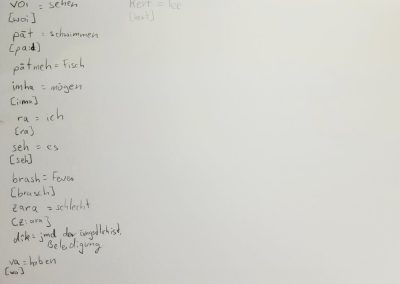 voi = sehen
[woi]
pät = schwimmen
[pa:d]
pätmeh = Fisch
imha = mögen
[iima]
ra = ich
[ra]
seh = es
[seh]
brash = Feuer
[brasch]
zara = schlecht
[ziara]
dik = jmd der
Beleidigung
va = haben
[wa]
Kert = Ice
[kert]